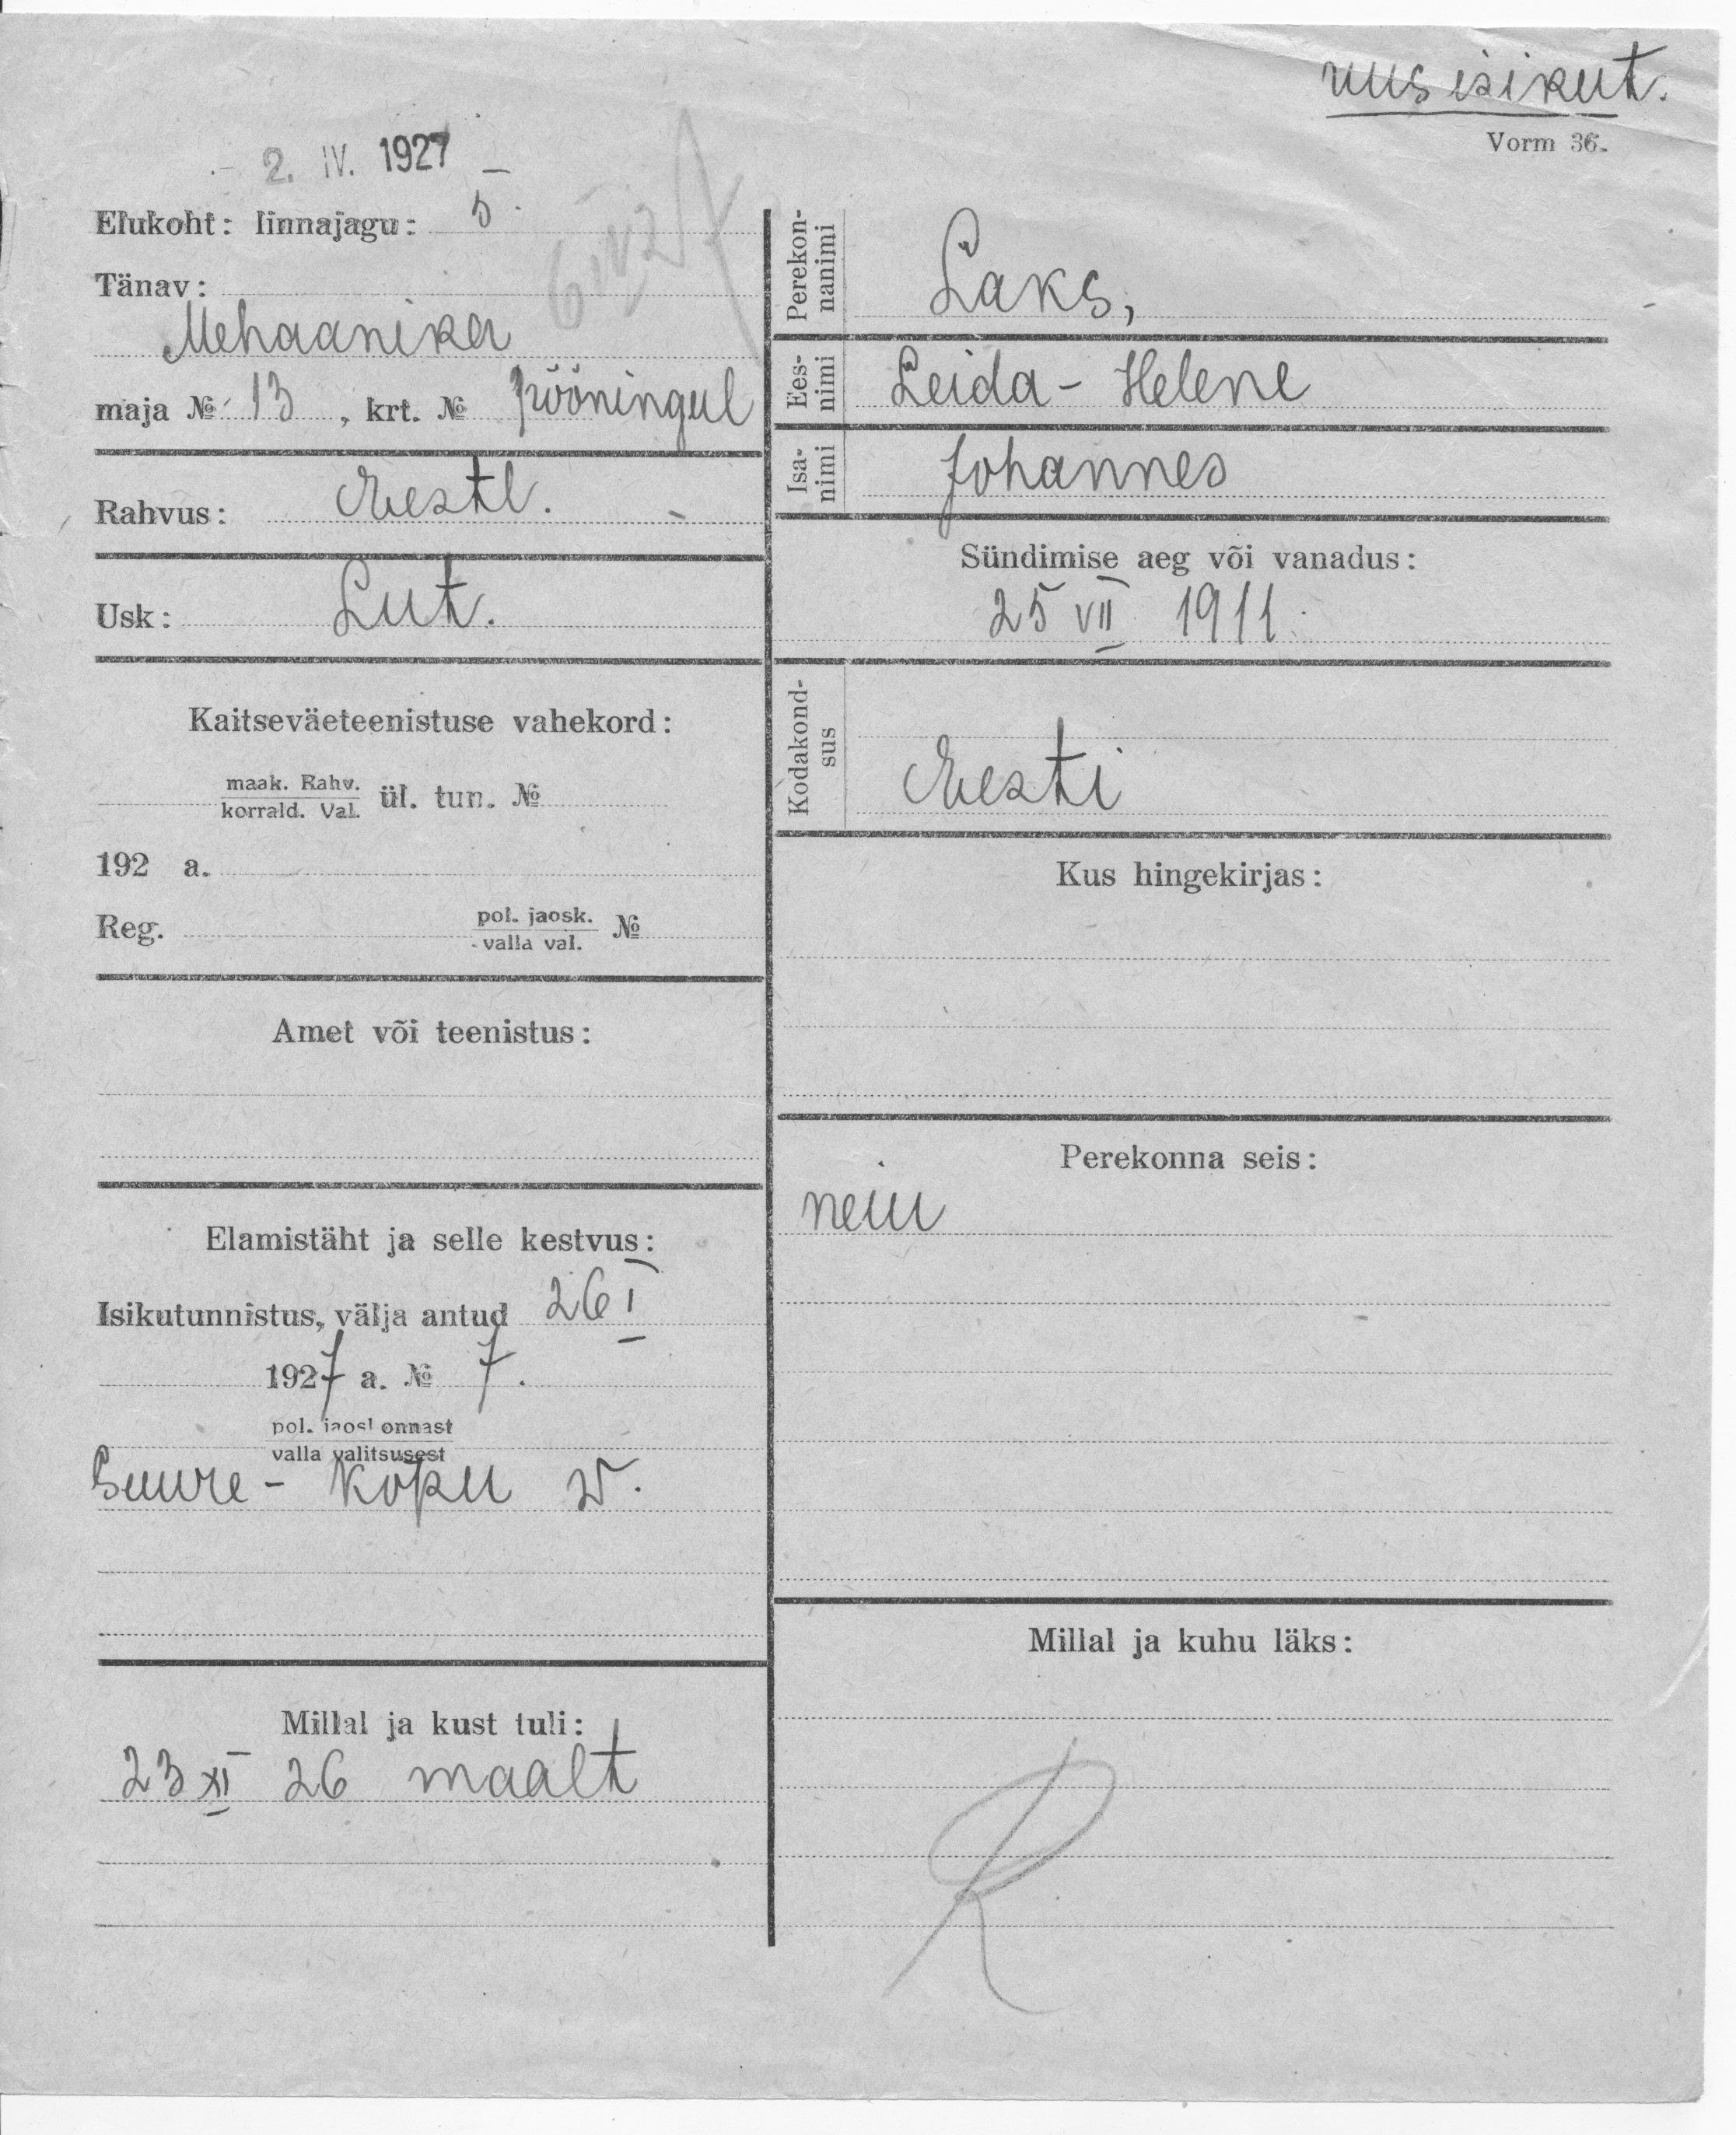 uus isikut.
Vorm 36.
2. IV. 1927
Elukoht: linnajagu: 5.
Tänav:
Mehaanika
maja № 13, krt. № pööningul
Rahvus: Eestl.
Usk: Lut.
Kaitseväeteenistuse vahekord:
maak. Rahv.
korrald. Val. ül. tun. №
192 a.
Reg. pol. jaosk.
valla val. №
Amet või teenistus:
Elamistäht ja selle kestvus:
Isikutunnistus, välja antud 26 I
1927 a. № 7.
pol. jaoskonnast
valla valitsusest
Suure-Kõpu v.
Millal ja kust tuli:
23 XI 26 maalt
Perekon-
nanimi
Laks,
Ees-
nimi
Leida - Helene
Isa-
nimi
Johannes
Sündimise aeg või vanadus:
25 VII 1911.
Kodakond-
sus
Eesti
Kus hingekirjas:
Perekonna seis:
neiu
Millal ja kuhu läks:
R